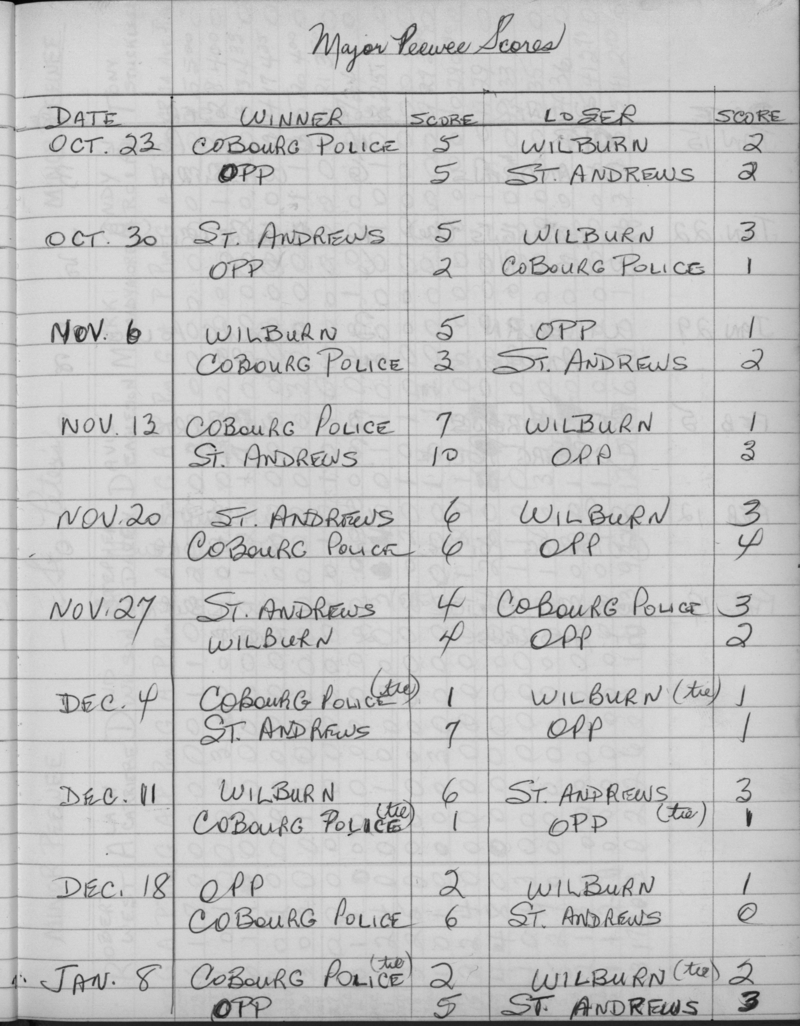 Major Peewee Scores
DATE WINNER SCORE LOSER SCORE
OCT. 23 COBOURG POLICE 5 WILBURN 2
OPP 5 ST. ANDREWS 2
OCT. 30 ST. ANDREWS 5 WILBURN 3
OPP 2 COBOURG POLICE 1
NOV. 6 WILBURN 5 OPP 1
COBOURG POLICE 3 ST. ANDREWS 2
NOV. 13 COBOURG POLICE 7 WILBURN 1
ST. ANDREWS 10 OPP 3
NOV. 20 ST. ANDREWS 6 WILBURN 3
COBOURG POLICE 6 OPP 4
NOV. 27 ST. ANDREWS 4 COBOURG POLICE 3
WILBURN 4 OPP 2
DEC. 4 COBOURG POLICE (tie) 1 WILBURN (tie) 1
ST. ANDREWS 7 OPP 1
DEC. 11 WILBURN 6 ST. ANDREWS 3
COBOURG POLICE (tie) 1 OPP (tie) 1
DEC. 18 OPP 2 WILBURN 1
COBOURG POLICE 6 ST. ANDREWS 0
JAN. 8 COBOURG POLICE (tie) 2 WILBURN (tie) 2
OPP 5 ST. ANDREWS 3